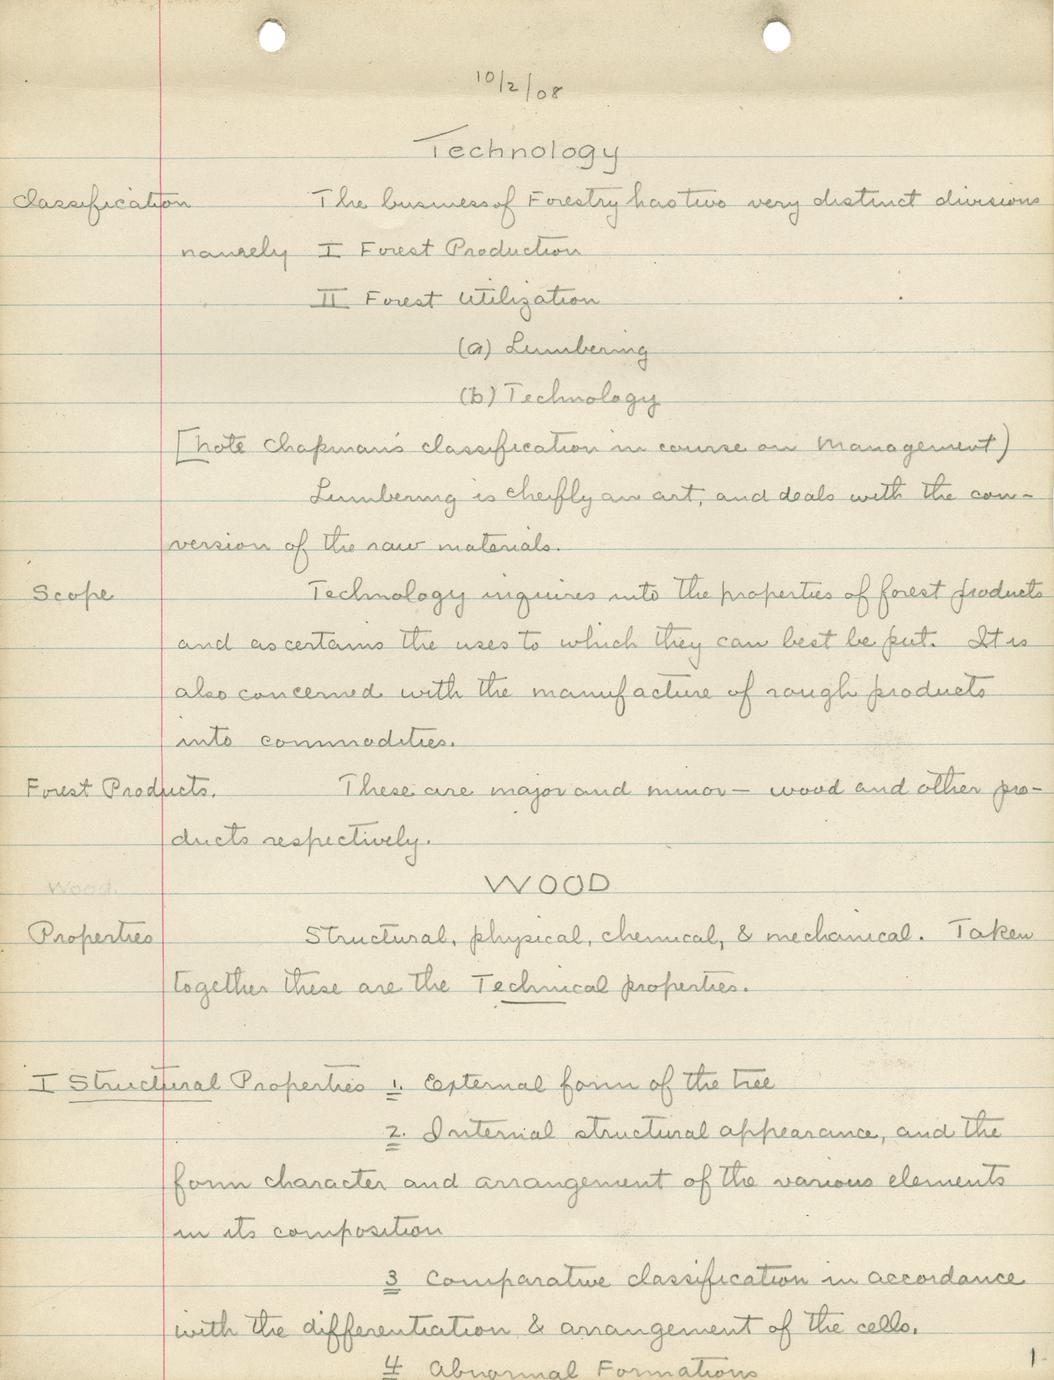 10/2/08
Technology
Classification The business of Forestry has two very distinct divisions
namely I Forest Production
II Forest Utilization
(a) Lumbering
(b) Technology
[Note Chapman's classification in course on Management)
Lumbering is cheifly an art, and deals with the con-
version of the raw materials.
Scope Technology inquires into the properties of forest products
and ascertains the uses to which they can best be put. It is
also concerned with the manufacture of rough products
into commodities.
Forest Products. These are major and minor — wood and other pro-
ducts respectively.
Wood. WOOD
Properties Structural, physical, chemical, & mechanical. Taken
together these are the Technical properties.
I Structural Properties 1. External form of the tree
2. Internal structural appearance, and the
form character and arrangement of the various elements
in its composition
3 Comparative classification in accordance
with the differentiation & arrangement of the cells.
4 Abnormal Formations
1